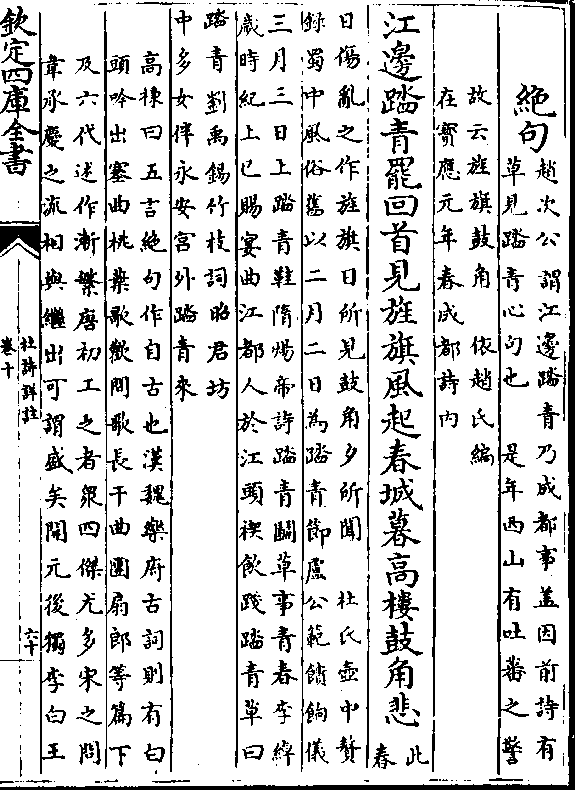 絶句趙次公謂江邊踏青乃成都事盖因前詩有
草見踏青心句也　是年西山有吐蕃之警
故云旌旗鼓角　依趙氏編
在寳應元年春成都詩内
江邊踏青罷回首見旌旗風起春城暮高樓鼓角悲此
春
日傷亂之作旌旗日所見鼓角夕所聞　杜氏壺中贅
録蜀中風俗舊以二月二日為踏青節盧公範饋餉儀
三月三日上踏青鞋隋煬帝詩踏青鬭草事青春李綽
歲時紀上巳賜宴曲江都人於江頭禊飲踐踏青草曰
踏青劉禹錫竹枝詞昭君坊
中多女伴永安宫外踏青來
高棅曰五言絶句作自古也漢魏樂府古詞則有白
頭吟出塞曲桃葉歌歡問歌長干曲團扇郎等篇下
及六代述作漸繁唐初工之者衆四傑尤多宋之問
韋承慶之流相與繼出可謂盛矣開元後獨李白王
欽定四庫全書
杜詩詳註
卷十
六十